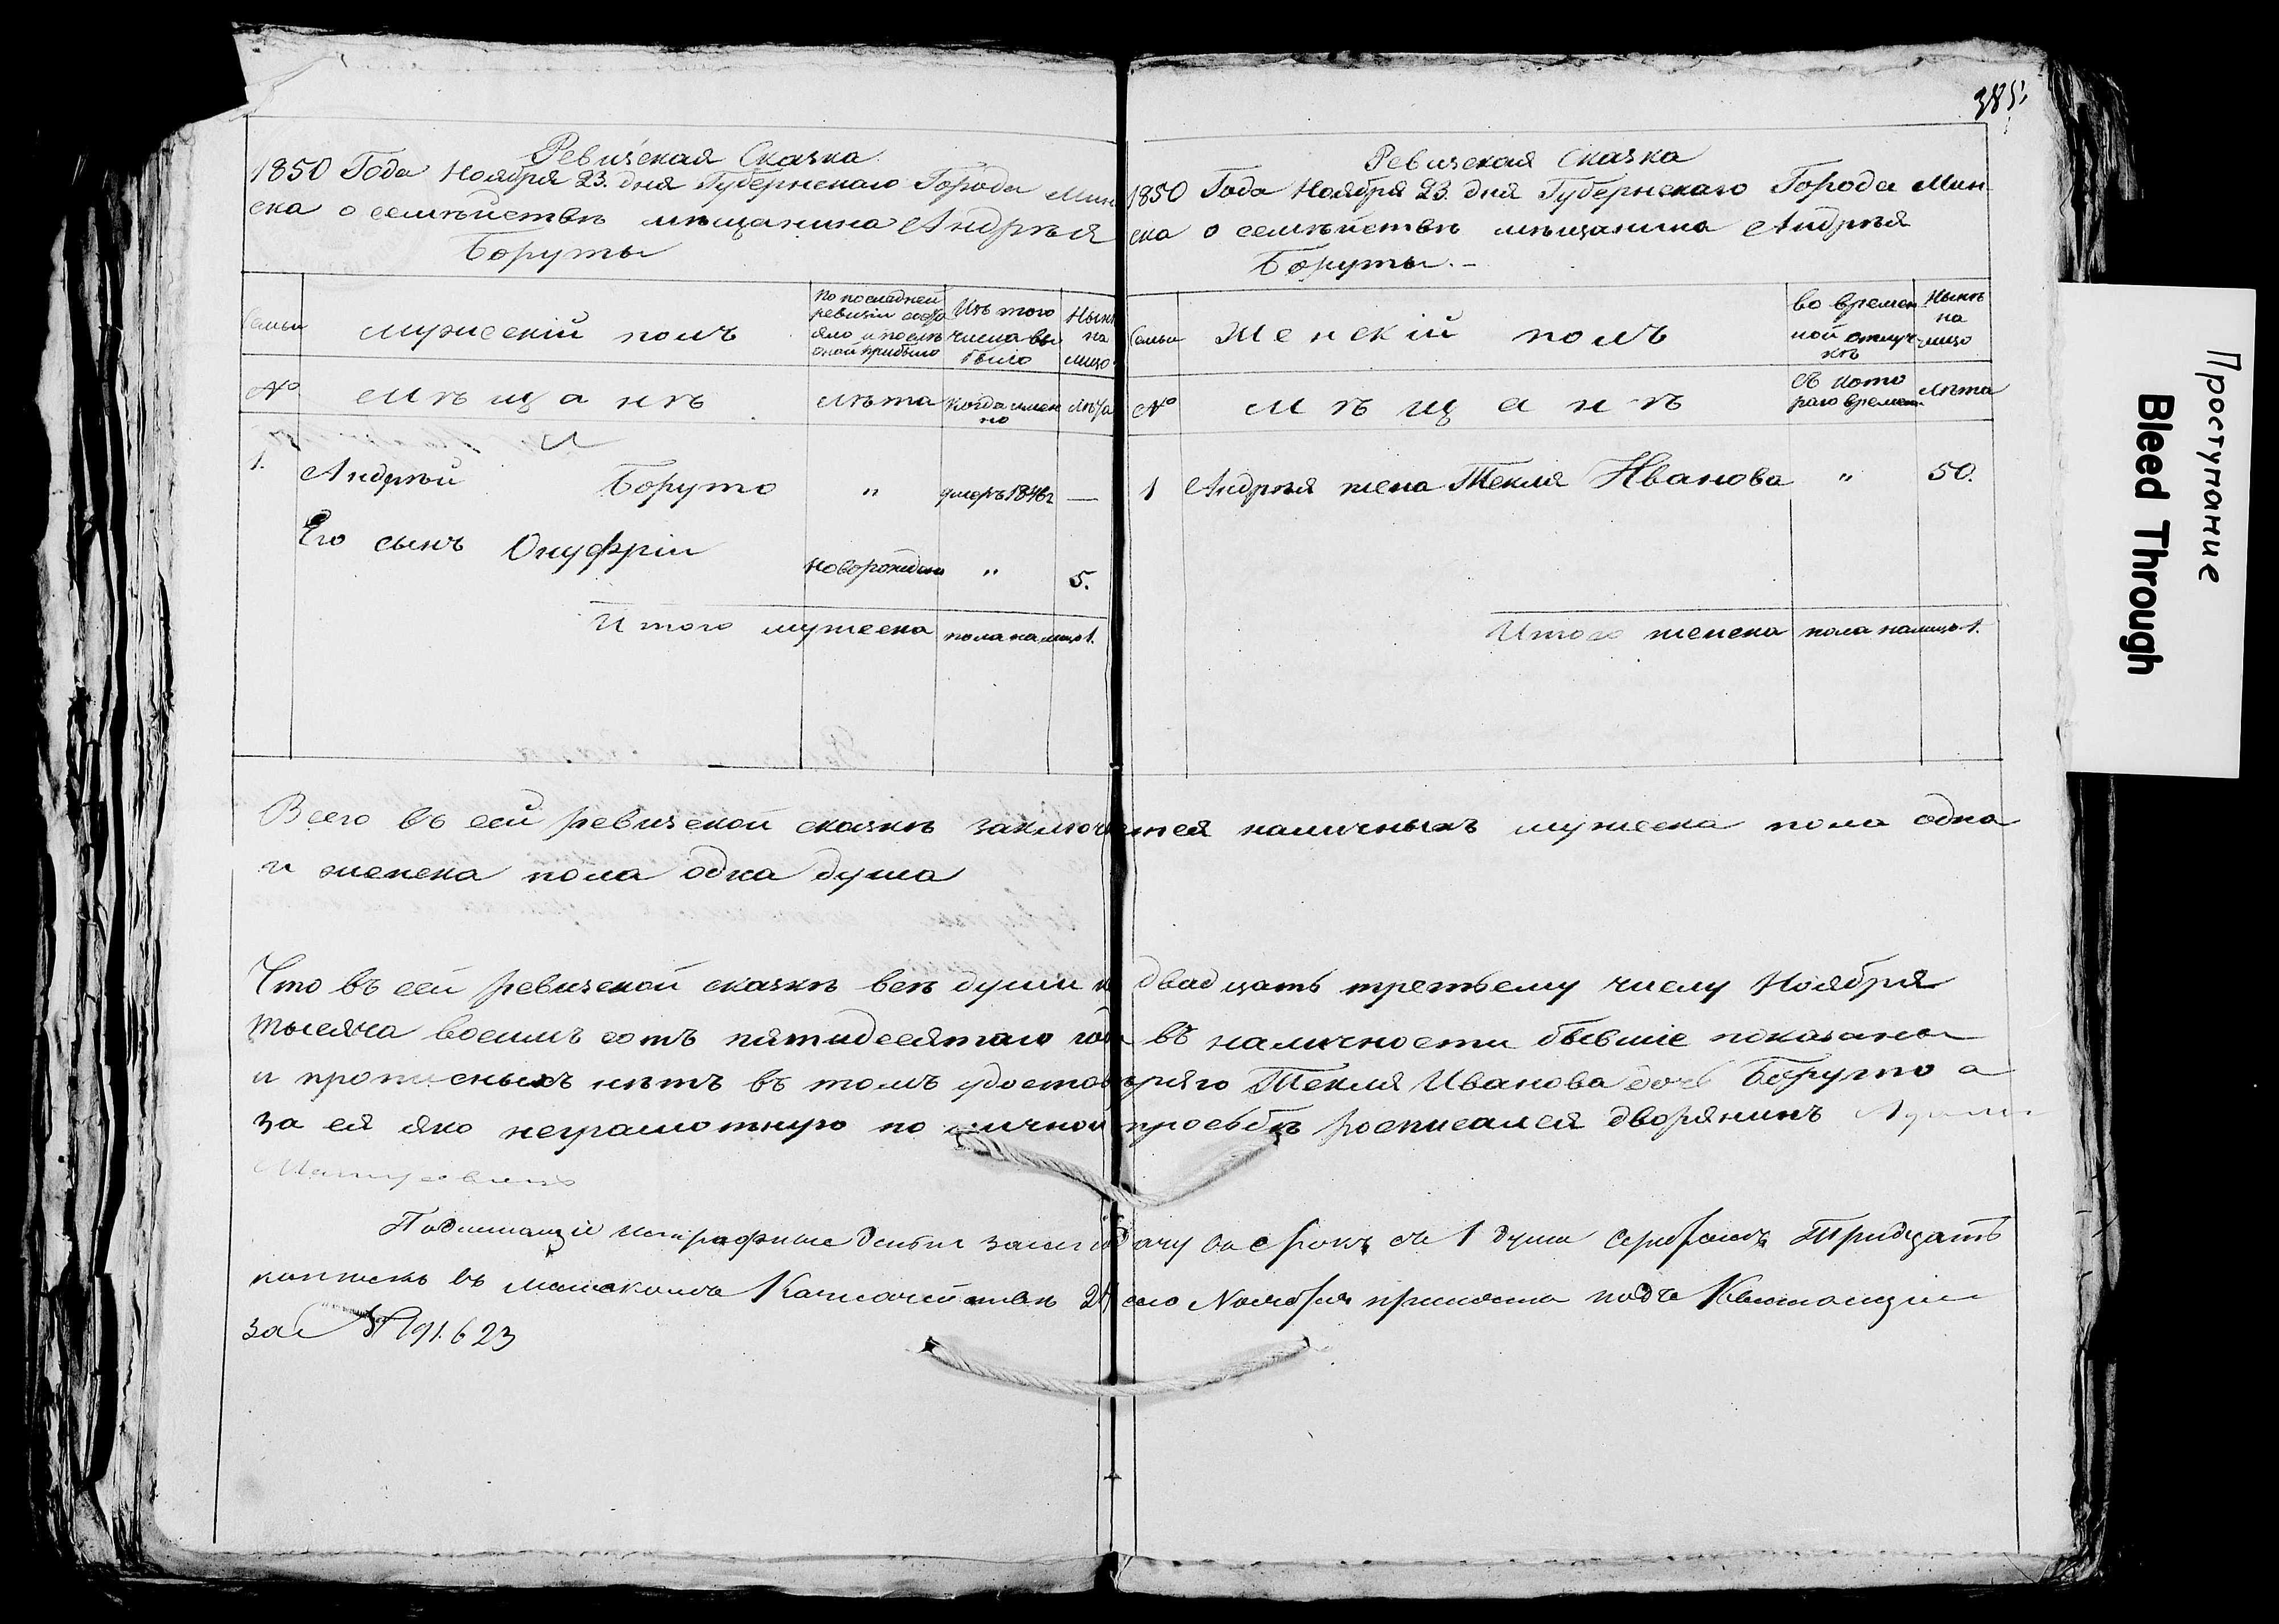 385
Ревизская Сказка
1850 Года Ноября 23. дня Губернскаго Города Мин
ска о семѣйствѣ мѣщанина Андрѣя
Боруты
Семьи
мужескій полъ
По последней ревизіи состояло и послѣ оной прибыло
Изъ того числа выбыло
Нынѣ на лицо
№
Мѣщанѣ
Лѣта
Когда именно
Лѣта
1.
Андрѣй Боруто
"
умеръ 1846 г
—
Его сынъ Онуфрій
новорожден
"
5.
Итого мужеска пола на лицо 1.
Ревизская Сказка
1850 Года Ноября 23. дня Губернскаго Города Мин
ска о семѣйствѣ мѣщанина Андрѣя
Боруты. –
Семьи
Женскій полъ
во времен
ной отлуч
кѣ
Нынѣ
на
лицо
№
Мѣщанѣ
съ кото
раго времени
Лѣта
1
Андрѣя жена Текля Иванова
"
50.
Итого женска пола на лицо 1.
Всего въ сей ревизской сказкѣ заключается наличныхъ мужеска пола одна
и женска пола одна душа
Что въ сей ревизской сказкѣ всѣ души к двадцать третьему числу Ноября
тысяча восемь сотъ пятидесятаго года въ наличности бывшіе показаны
и прописныхъ нѣтъ въ томъ удостовѣряю Текля Иванова дочь Боруто а
за ея яко неграмотную по личной просьбѣ росписался дворянинъ
штрафные деньги за не подачу въ срокъ съ 1 души серебромъ Тридцать
копѣекъ въ Минскомъ Казначействѣ Ноября приняты подъ Квитанцию
за № 191.623
Проступание
Bleed Through